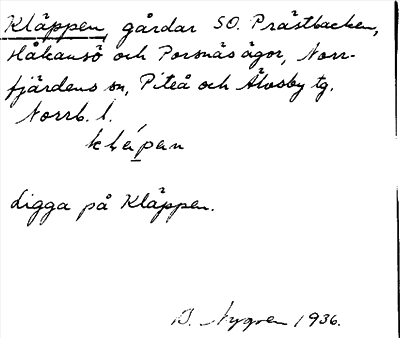 Kläppen, gårdar SO. Prästbacken,
Håkansö och Porsnäs ägor, Norr-
fjärdens sn, Piteå och Älvsby tg.
Norrb. l.
klépen
Ligga på Kläppen.
B. Nygren 1936.